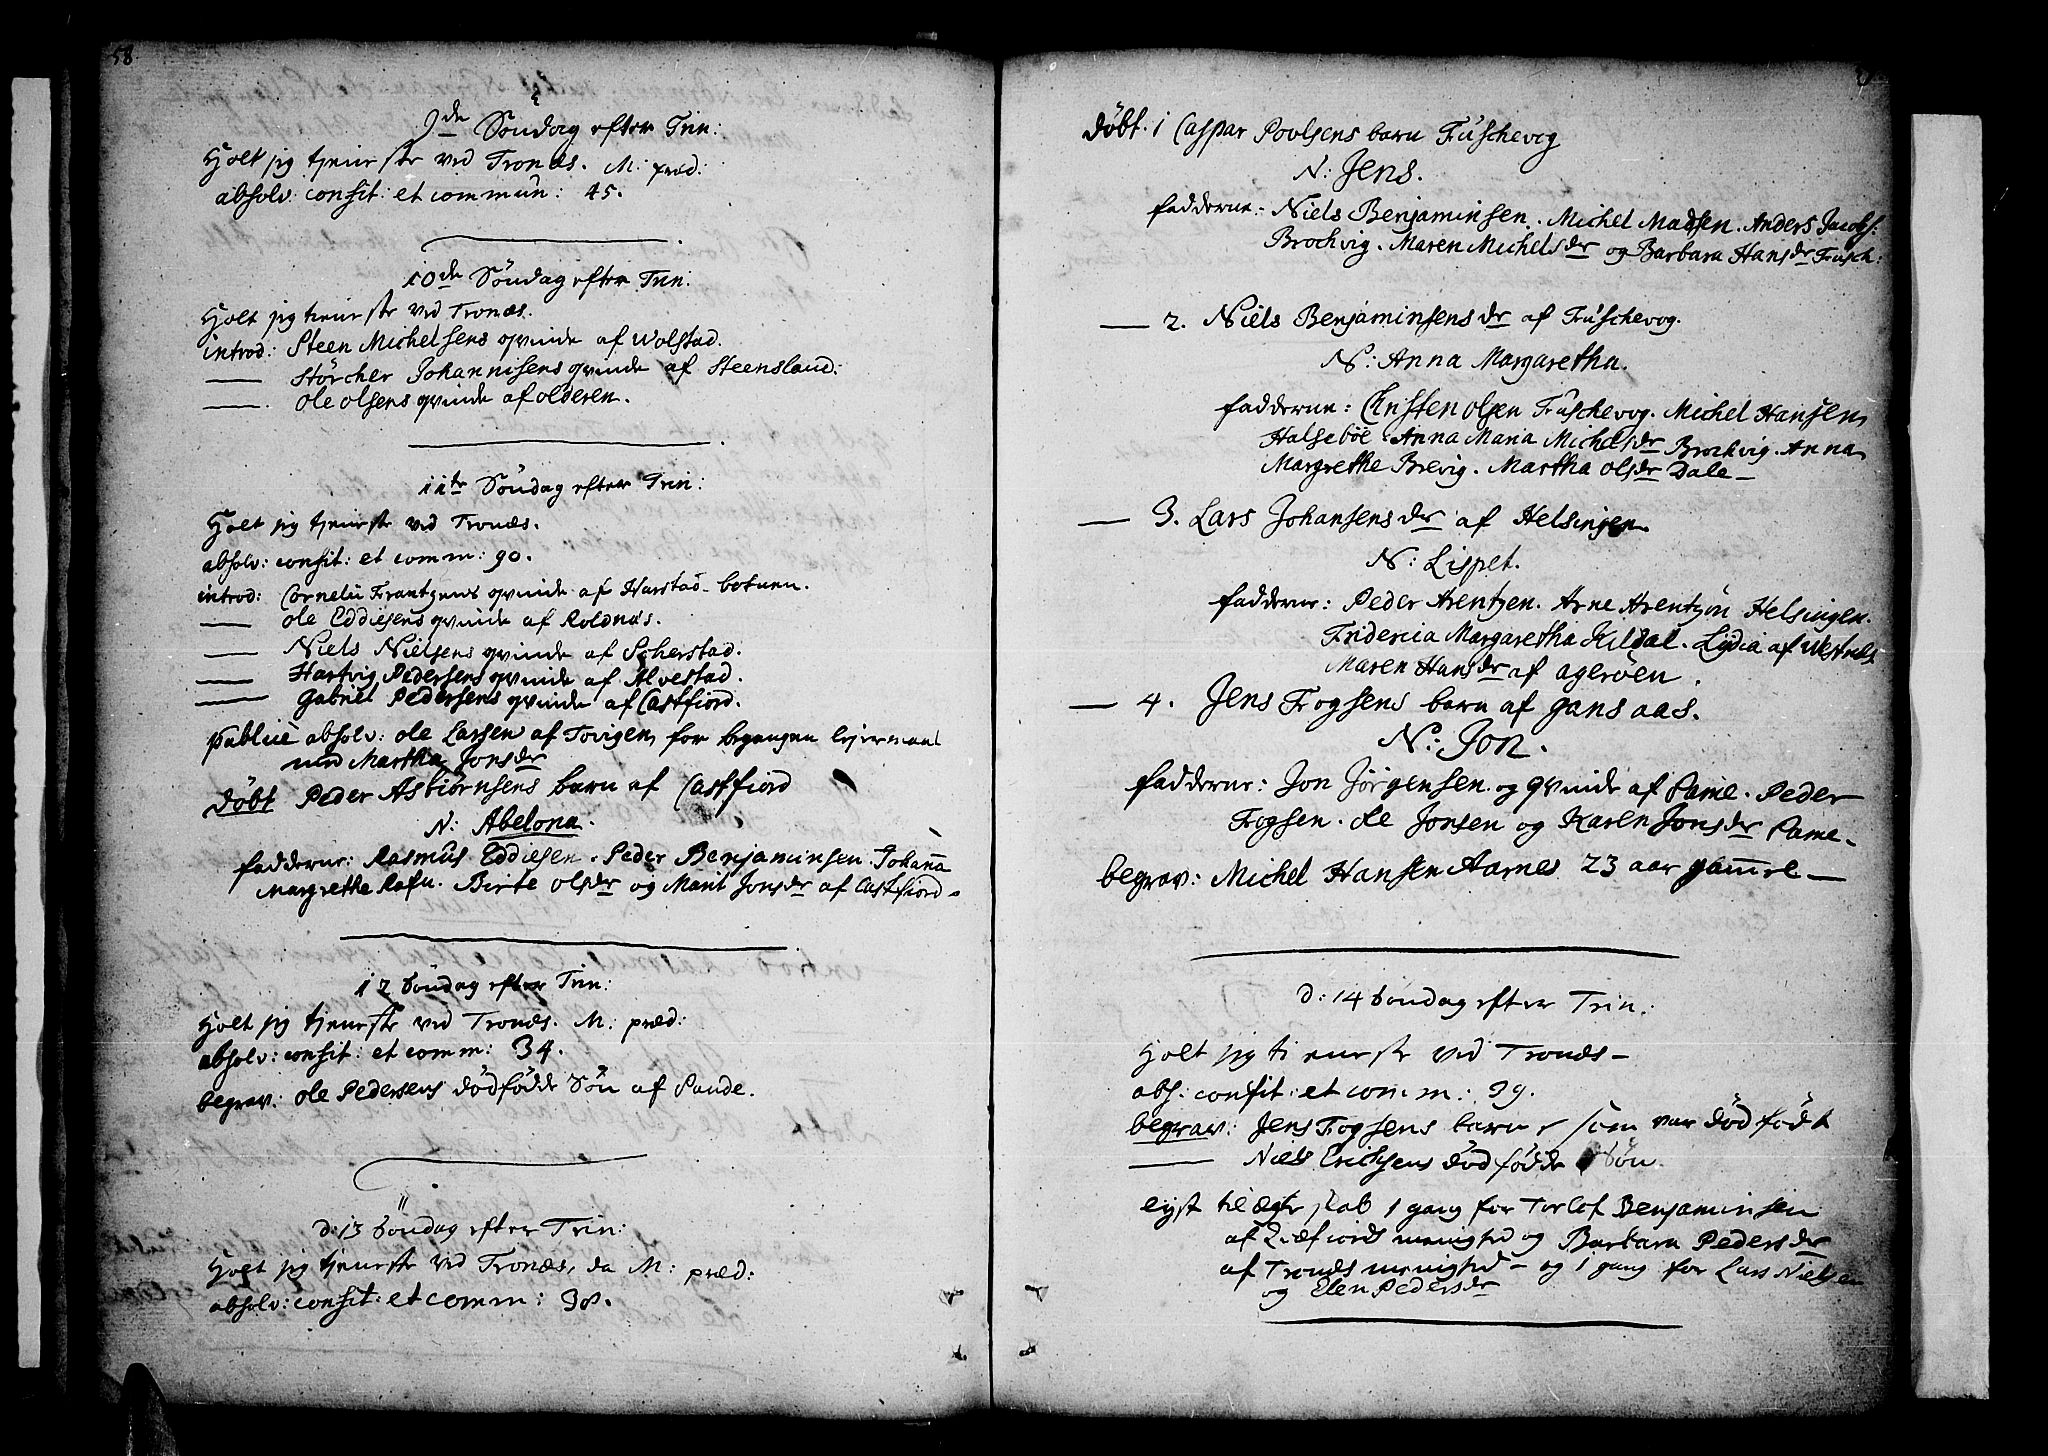 58
9de Søndag efter Trin:
Holt jeg tieniste ved Tronæs. M: præd:
absolv: consit: et commun: 45.
10de Søndag efter Trin:
Holt jeg tieniste ved Tronæs.
introd: Steen Michelsens qvinde af Wolstad.
—— Störcher Johannisens qvinde af Steensland:
——. Ole Olsens qvinde af Olderen.
11te Søndag efter Trin:
Holt jeg tieniste ved Tronæs.
absolv: consit: et comm: 90.
introd: Cornelii Frantzens qvinde af Harstad-botnen.
—— Ole Eddiesens qvinde af Roldnæs.
—— Niels Nielsens qvinde af Scherstad.
—— Hartvig Pedersens qvinde af Alvestad.
—— Gabriel Pedersens qvinde af Castfiord.
publicè absolv: Ole Larsen af Tovigen for begangen leiermaal
med Martha Jonsdr
døbt Peder Asbiörnsens barn af Castfiord
N: Abelona.
fadderne: Rasmus Eddiesen. Peder Benjaminsen. Johanna
Margrethe Rafn. Birte Olsdr og Marit Jonsdr af Castfiord.
12 Søndag efter Trin:
Holt jeg tjeniste ved Tronæs. M: præd:
absolv: consit: et comm: 34.
begrav: Ole Pedersens dødfødde Søn af Sande.
d: 13 Søndag efter Trin:
Holt jeg tjeniste ved Tronæs, da M: præd:
absolv: consit: et comm: 38.
døbt. 1 Caspar Povlsens barn Fuschevog
N: Jens.
fadderne: Niels Benjaminsen. Michel Madsen. Anders Jacobs:
Brochvig. Maren Michelsdr og Barbara Hansdr Fusch:
—— 2. Niels Benjaminsens dr af Fuschevog.
N: Anna Margaretha.
fadderne: Christen Olsen Fuschevog. Michel Hansen
Halsebøe. Anna Maria Michelsdr Brochvig. Anna
Margrethe Brevig. Martha Olsdr Dale —
—— 3. Lars Johansens dr af Helsingen.
N: Lispet.
fadderne: Peder Arentzen. Arne Arentzøn Helsingen.
Fridericia Margaretha Kildal. Lydia af
Maren Hansdr af Agerøen.
—— 4. Jens Fogsens barn af Gansaas.
N: Jon.
fadderne: Jon Jørgensen og qvinde af Same. Peder
Fogsen. Ole Jonsen og Karen Jonsdr Same.
begrav: Michel Hansen Aarnes 23 aar gamel —
d: 14 Søndag efter Trin:
Holt jeg tieniste ved Tronæs —
abs: consit: et comm: 39.
begrav: Jens Fogsens barn, som var dødfødt
—— Niels Erichsens dødfødde Søn.
lyst til ægteskab 1 gang for Torlof Benjaminsen
af Qvæfiords menighed og Barbara Pedersdr
af Tronæs menighed — og 1 gang for Lars Nielsen
og Elen Pedersdr